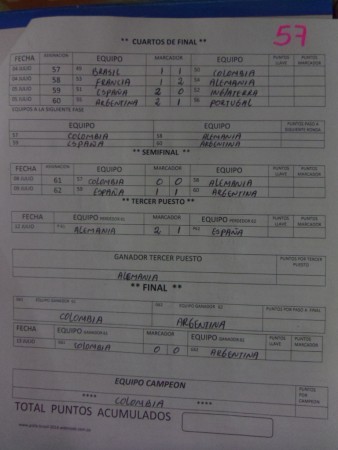 57
** CUARTOS DE FINAL **
FECHA EQUIPO MARCADOR EQUIPO PUNTOS LLAVE PUNTOS MARCADOR
04 JULIO 57 BRASIL 1 1 COLOMBIA
04 JULIO 58 FRANCIA 1 2 ALEMANIA
05 JULIO 59 ESPAÑA 2 0 INGLATERRA
05 JULIO 60 ARGENTINA 2 1 PORTUGAL
EQUIPOS A LA SIGUIENTE FASE
EQUIPO EQUIPO PUNTOS PASO A SIGUIENTE RONDA
57 COLOMBIA 58 ALEMANIA
59 ESPAÑA 60 ARGENTINA
** SEMIFINAL **
08 JULIO 61 57 COLOMBIA 0 0 58 ALEMANIA
09 JULIO 62 59 ESPAÑA 1 1 60 ARGENTINA
** TERCER PUESTO **
FECHA EQUIPO PERDEDOR 61 MARCADOR EQUIPO PERDEDOR 62 PUNTOS LLAVE PUNTOS MARCADOR
12 JULIO ALEMANIA 2 1 ESPAÑA
GANADOR TERCER PUESTO PUNTOS POR TERCER PUESTO
ALEMANIA
** FINAL **
EQUIPO GANADOR EQUIPO GANADOR PUNTOS POR PASO A FINAL
COLOMBIA ARGENTINA
FECHA EQUIPO MARCADOR EQUIPO PUNTOS LLAVE PUNTOS MARCADOR
13 JULIO COLOMBIA 0 0 ARGENTINA
EQUIPO CAMPEON PUNTOS POR CAMPEON
**** COLOMBIA ****
TOTAL PUNTOS ACUMULADOS